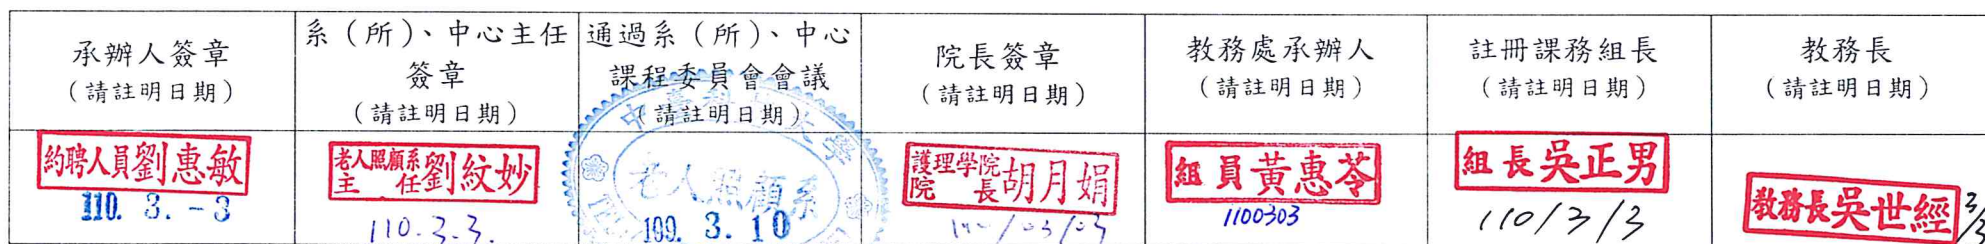 承辦人簽章
(請註明日期)
系（所）、中心主任
簽章
(請註明日期)
通過系（所）、中心
課程委員會會議
(請註明日期)
院長簽章
(請註明日期)
教務處承辦人
(請註明日期)
註冊課務組長
(請註明日期)
教務長
(請註明日期)
約聘人員劉惠敏
110. 3. -3
老人照顧系
主任劉紋妙
110.3.3.
中臺科技大學
老人照顧系
109. 3. 10
護理學院
院長胡月娟
110/03/03
組員黃惠苓
1100303
組長吳正男
110/3/3
教務長吳世經